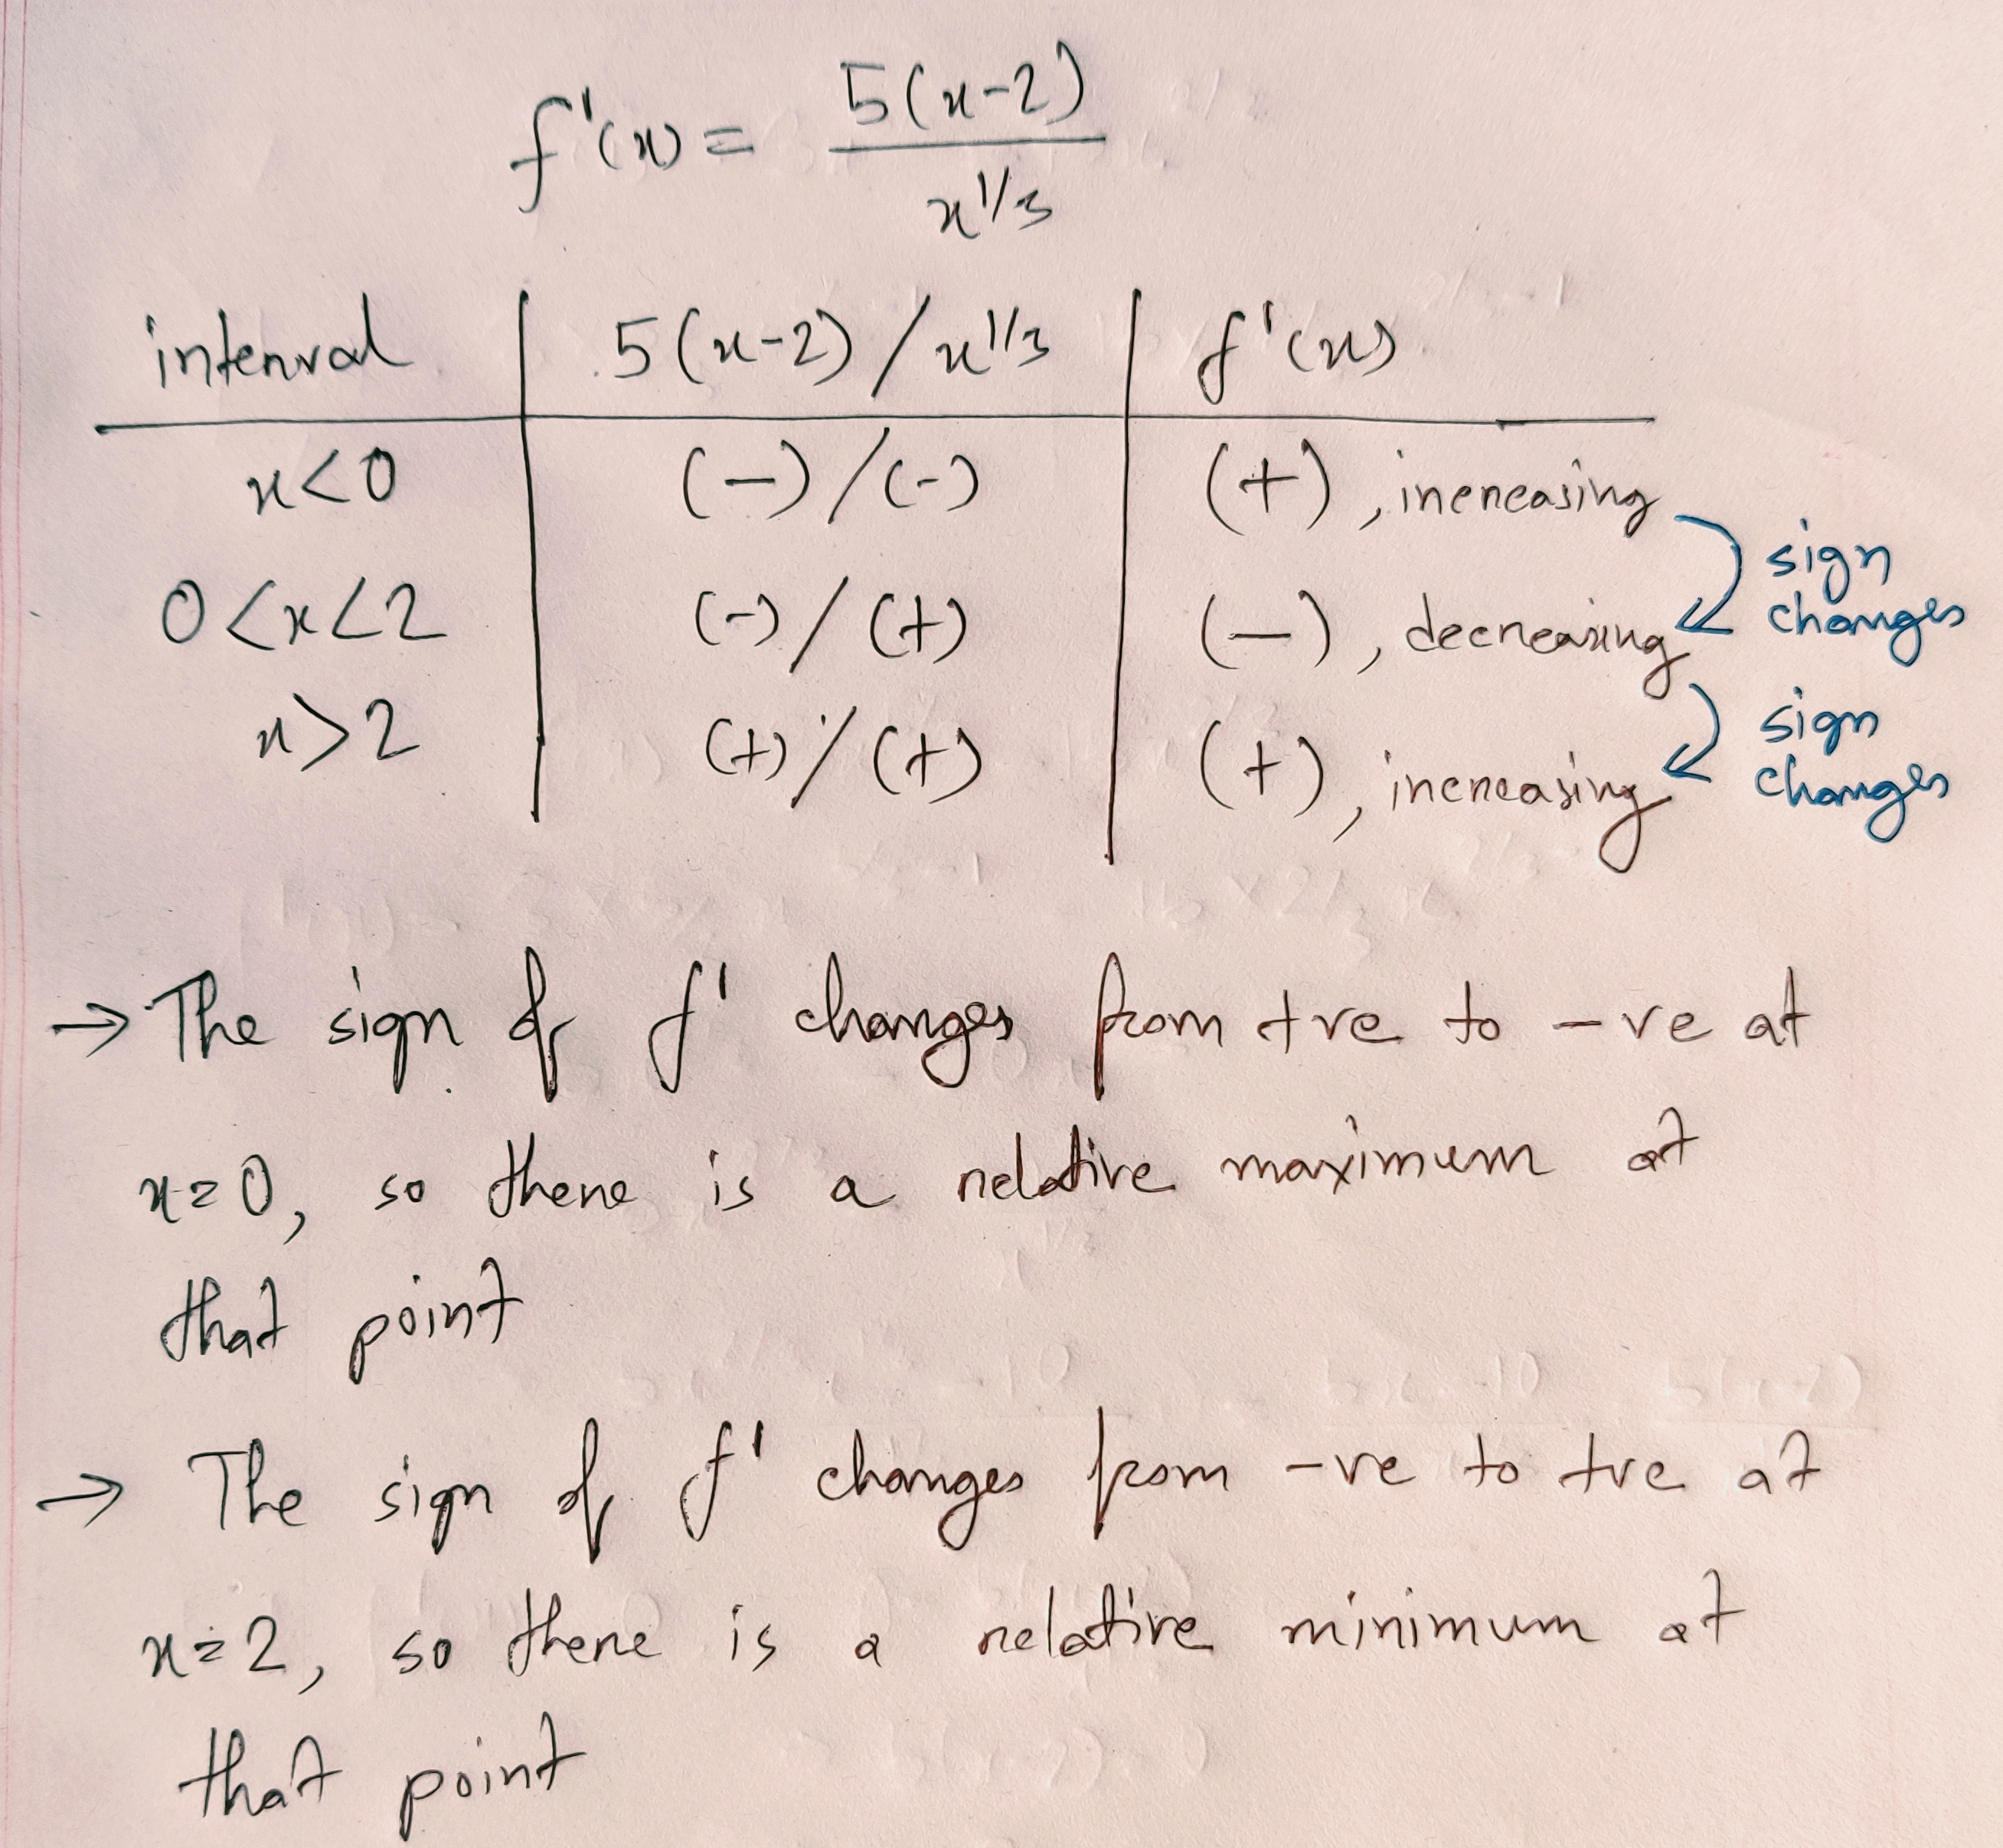 f'(x) = 5(x-2) / x^1/3
interval | 5(x-2)/x^1/3 | f'(x)
x<0 | (-)/(-) | (+), increasing
sign changes
0<x<2 | (-)/(+) | (-), decreasing
sign changes
x>2 | (+)/(+) | (+), increasing
→ The sign of f' changes from +ve to -ve at
x=0, so there is a relative maximum at
that point
→ The sign of f' changes from -ve to +ve at
x=2, so there is a relative minimum at
that point